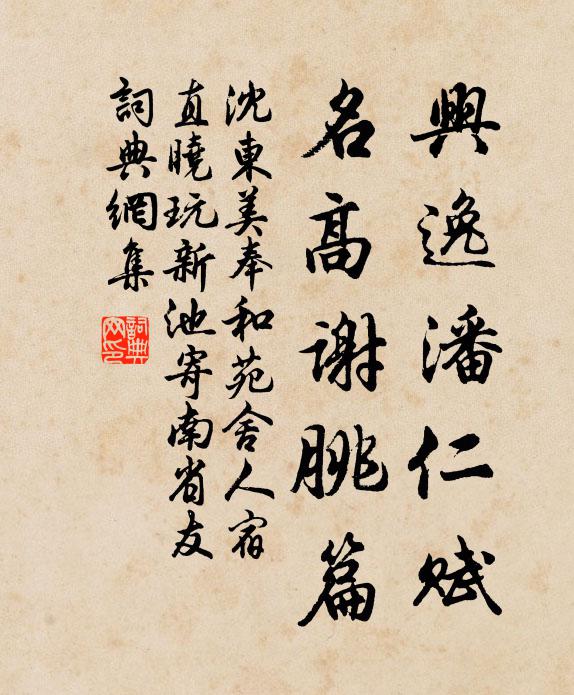 興逸潘仁賦
名高謝朓篇
沈東美奉和苑舍人宿
直曉玩新池寄南省友
詞典網集
詞典网印